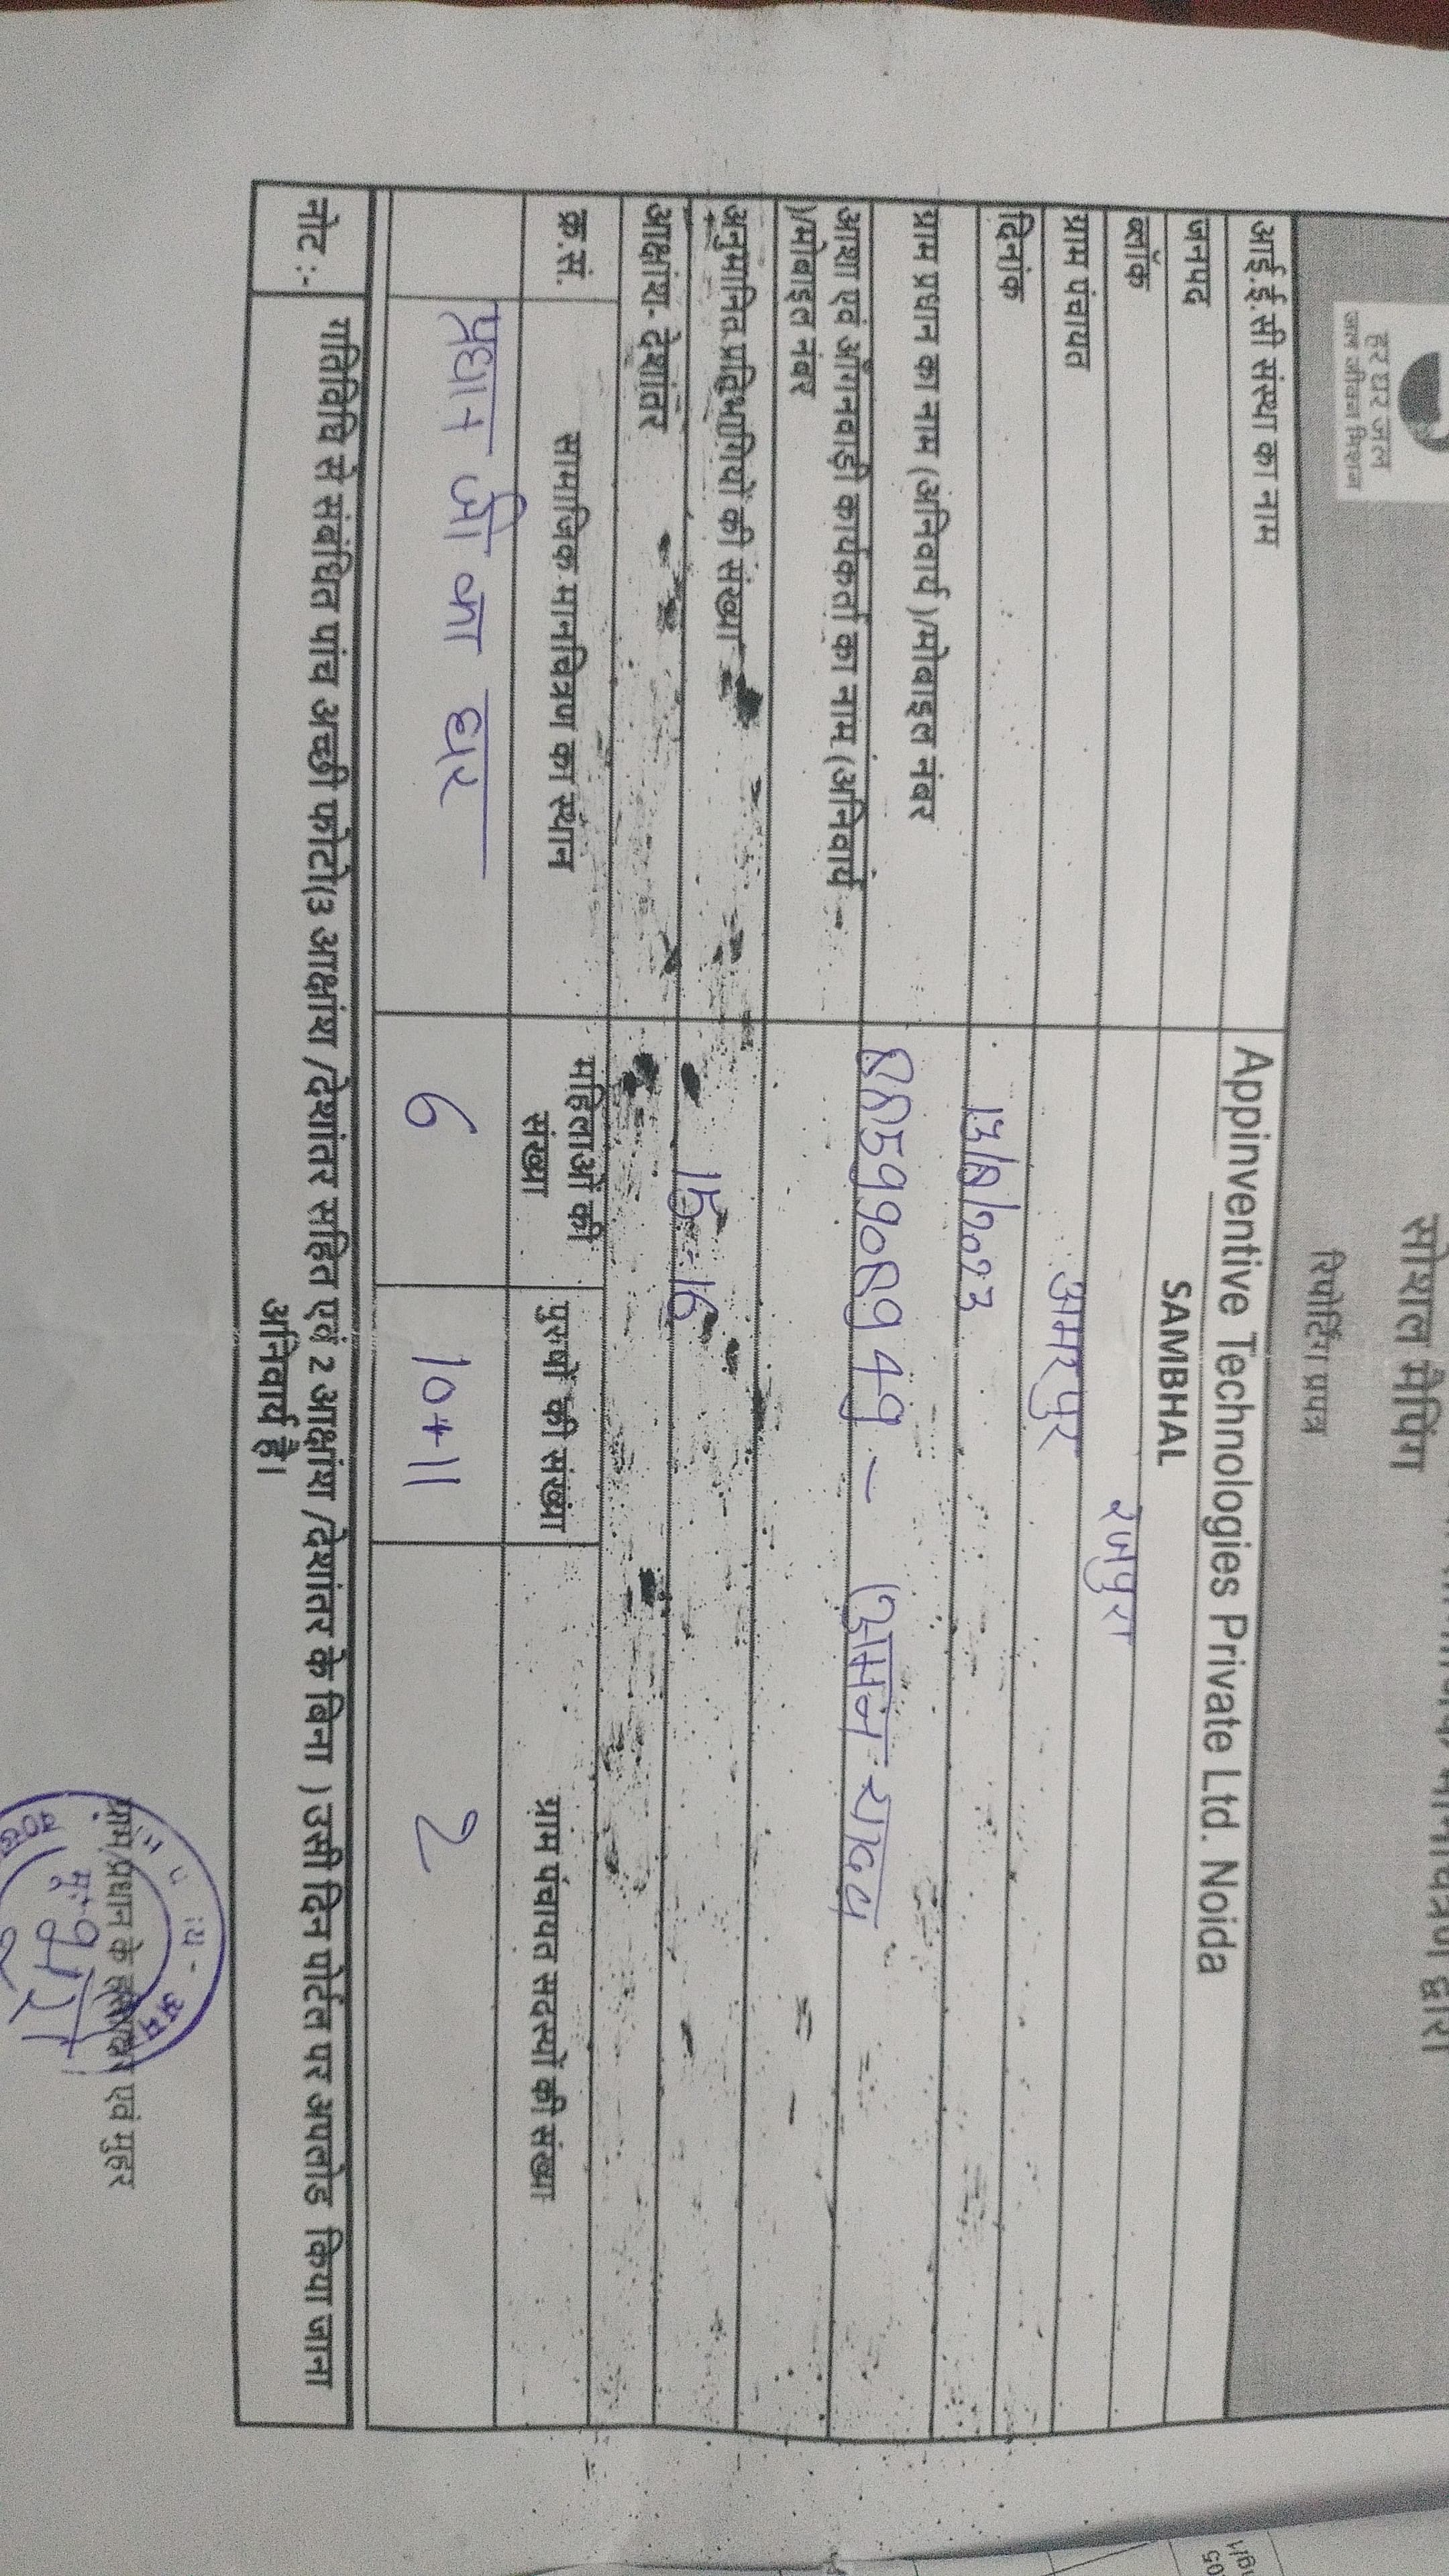 हर घर जल
जल जीवन मिशन
मानचित्रण द्वारा
सोशल मैपिंग
रिपोर्टिंग प्रपत्र
आई.ई.सी संस्था का नाम Appinventive Technologies Private Ltd. Noida
जनपद SAMBHAL
ब्लॉक रजपुरा
ग्राम पंचायत अमरपुर
दिनांक 13/8/2023
ग्राम प्रधान का नाम (अनिवार्य )/मोबाइल नंबर
8859908949 – (अमन यादव
आशा एवं आँगनवाड़ी कार्यकर्ता का नाम (अनिवार्य
)/मोबाइल नंबर
अनुमानित प्रतिभागियों की संख्या 15-16
आक्षांश- देशांतर
क्र.सं. सामाजिक मानचित्रण का स्थान महिलाओं की संख्या पुरुषों की संख्या ग्राम पंचायत सदस्यों की संख्या
प्रधान जी का घर 6 10+11 2
नोट :- गतिविधि से संबंधित पांच अच्छी फोटो(3 आक्षांश /देशांतर सहित एवं 2 आक्षांश /देशांतर के बिना ) उसी दिन पोर्टल पर अपलोड किया जाना
अनिवार्य है।
ग्राम प्रधान के हस्ताक्षर एवं मुहर